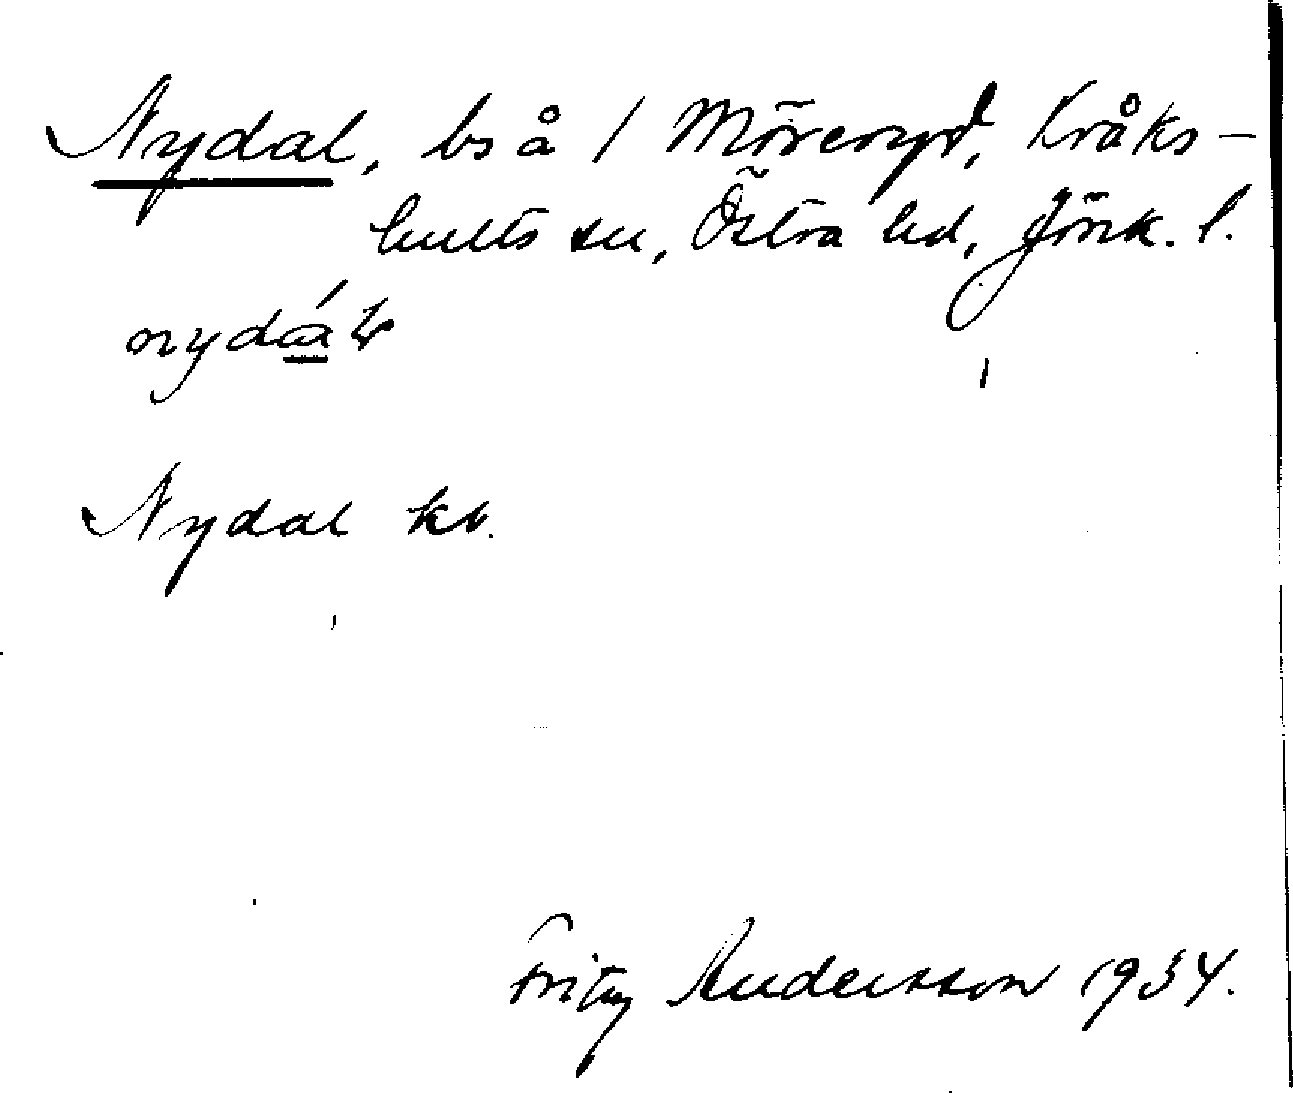 Nydal, bs å 1 Möreryd, Kråks-
hults sn, Östra hd, Jönk. l.
nydá
Nydal kb.
Fritz Andersson 1934.